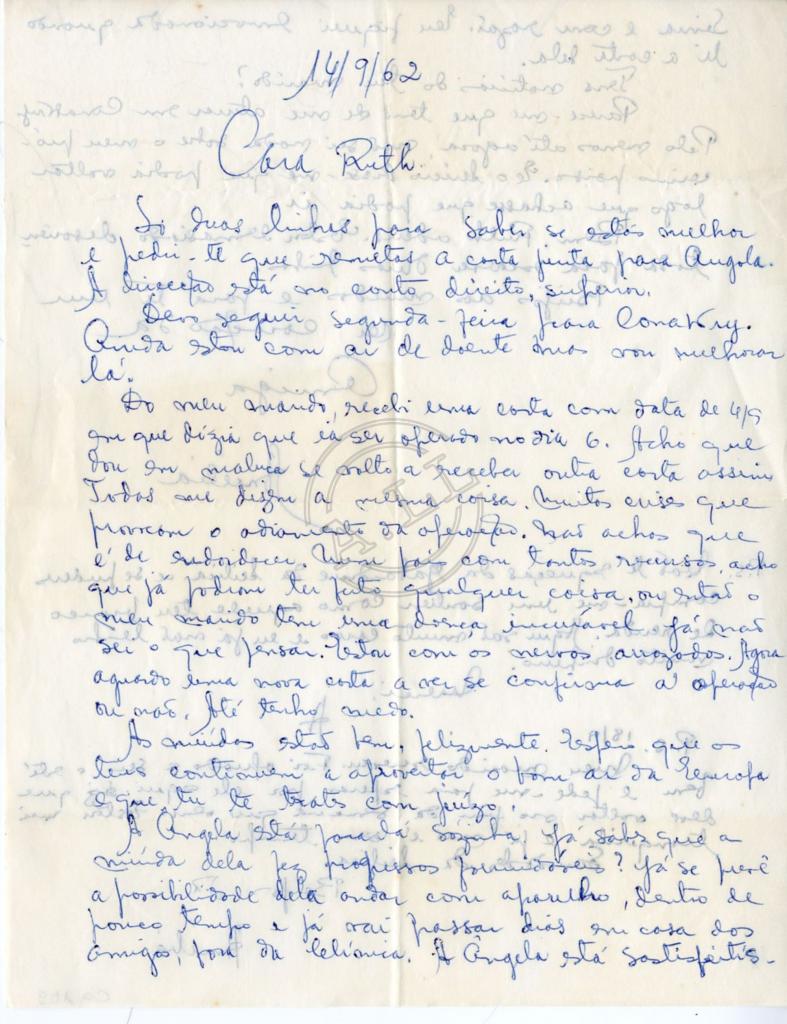 14/9/62
Cara Ruth.
Só duas linhas para saber se estás melhor
e pedir-te que remetas a carta junta para Angola.
A direcção está no canto direito, superior.
Devo seguir segunda-feira para Conakry.
Ainda estou com ar de doente mas vou melhorar
lá.
Do meu marido, recebi uma carta com data de 4/9
em que dizia que ia ser operado no dia 6. Acho que
dou em maluca se volto a receber outra carta assim
Todas me dizem a mesma coisa. Muitas crises que
provocam o adiamento da operação. Não achas que
é de endoidecer. Num país com tantos recursos, acho
que já podiam ter feito qualquer coisa, ou então o
meu marido tem uma doença incurável. Já não
sei o que pensar. Estou com os nervos arrazados. Agora
aguardo uma nova carta a ver se confirma a operação
ou não. Até tenho medo.
As miúdas estão bem, felizmente. Espero que os
teus continuem a aproveitar o bom ar da Europa
e que tu te trates com juízo.
A Ângela está para lá sózinha. Já sabes que a
miúda dela fez progressos formidáveis? Já se prevê
a possibilidade dela andar com aparelho, dentro de
pouco tempo e já vai passar dias em casa dos
amigos, fora da Clínica. A Ângela está sastisfeitís-